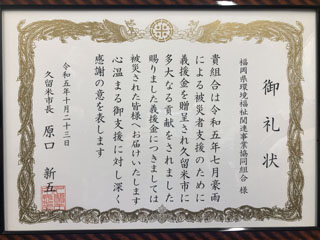 御礼状
福岡県環境福祉関連事業協同組合 様
貴組合は令和五年七月豪雨
による被災者支援のために
義援金を贈呈され久留米市に
多大なる貢献をされました
賜りました義援金につきましては
被災された皆様へお届けいたします
心温まる御支援に対し深く
感謝の意を表します
令和五年十月二十三日
久留米市長 原口 新五